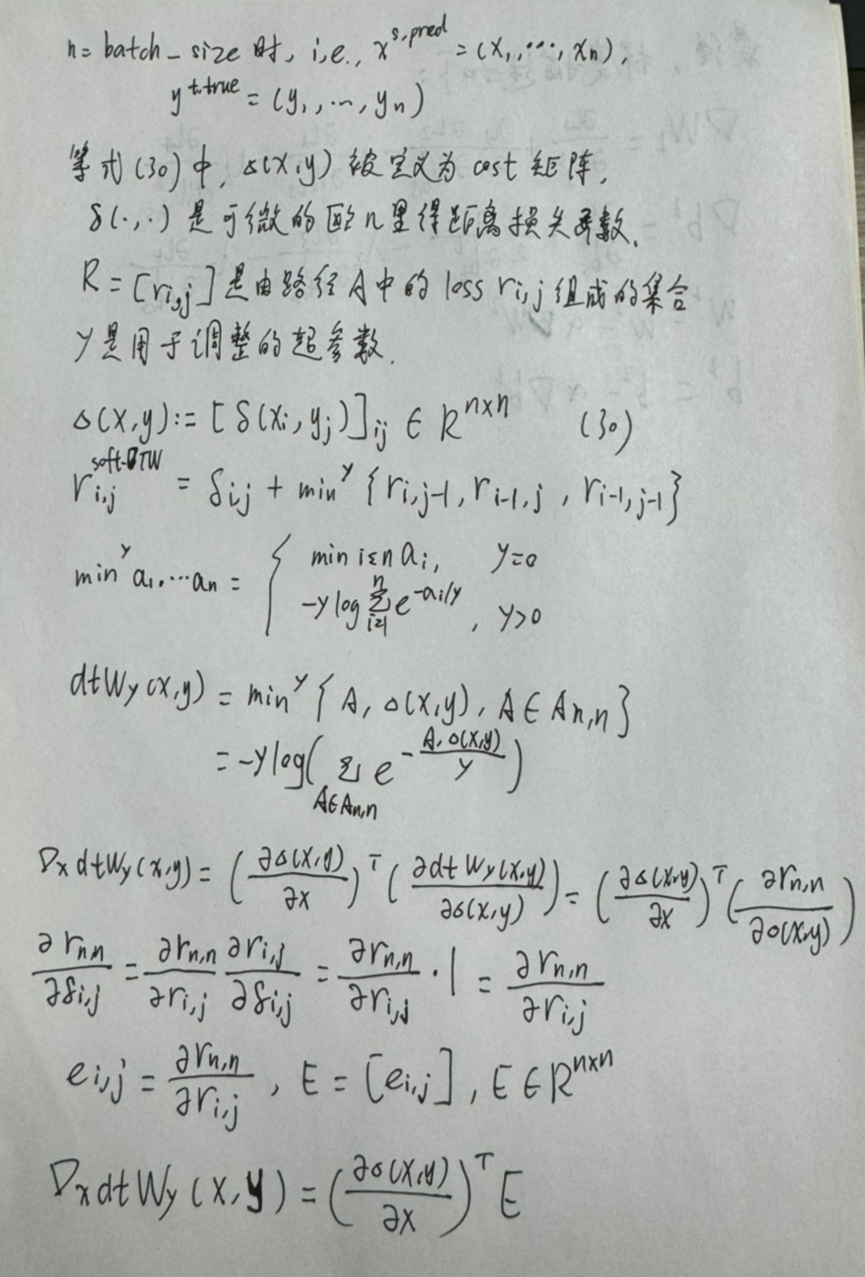 n = batch_size 时, i,e., x^{s.pred} = (x₁,…, xₙ),
y^{t.true} = (y₁, …, yₙ)
等式(30)中, Δ(x,y) 被定义为 cost 矩阵,
δ(·,·) 是可微的欧几里得距离损失函数,
R = [r_{i,j}] 是由路径 A 中的 loss r_{i,j} 组成的集合
γ是用于调整的超参数.
Δ(x,y) := [δ(x_i, y_j)]_{ij} ∈ R^{n×n} (30)
r_{i,j}^{soft-DTW} = δ_{ij} + min^γ {r_{i,j-1}, r_{i-1,j}, r_{i-1,j-1}}
min^γ a₁,…aₙ = { min i≤n a_i, γ=0
-γ log Σ_{i=1}^{n} e^{-a_i/γ}, γ>0
dtw_γ(x,y) = min^γ {A, Δ(x,y), A ∈ A_{n,n}}
= -γ log( Σ_{A∈A_{n,n}} e^{-\frac{A,Δ(x,y)}{γ}} )
∇_x dtw_γ(x,y) = (\frac{∂Δ(x,y)}{∂x})^T (\frac{∂dtw_γ(x,y)}{∂Δ(x,y)}) = (\frac{∂Δ(x,y)}{∂x})^T (\frac{∂r_{n,n}}{∂Δ(x,y)})
\frac{∂r_{n,n}}{∂δ_{i,j}} = \frac{∂r_{n,n}}{∂r_{i,j}} \frac{∂r_{i,j}}{∂δ_{i,j}} = \frac{∂r_{n,n}}{∂r_{i,j}} · 1 = \frac{∂r_{n,n}}{∂r_{i,j}}
e_{i,j} = \frac{∂r_{n,n}}{∂r_{i,j}}, E = [e_{i,j}], E ∈ R^{n×n}
∇_x dtw_γ(x,y) = (\frac{∂Δ(x,y)}{∂x})^T E